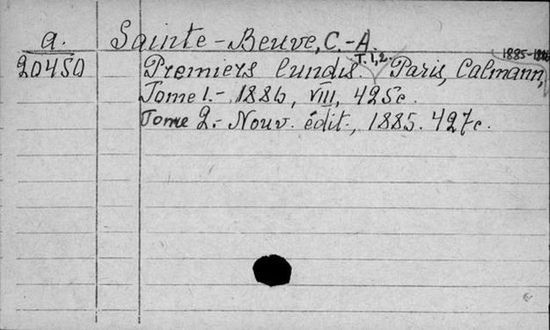 a. Sainte-Beuve, C.-A.
20450 Premiers lundis. T. 1,2 Paris, Calmann, 1885-1886
Tome 1.- 1886, VIII, 425c.
Tome 2.- Nouv. édit., 1885. 427c.